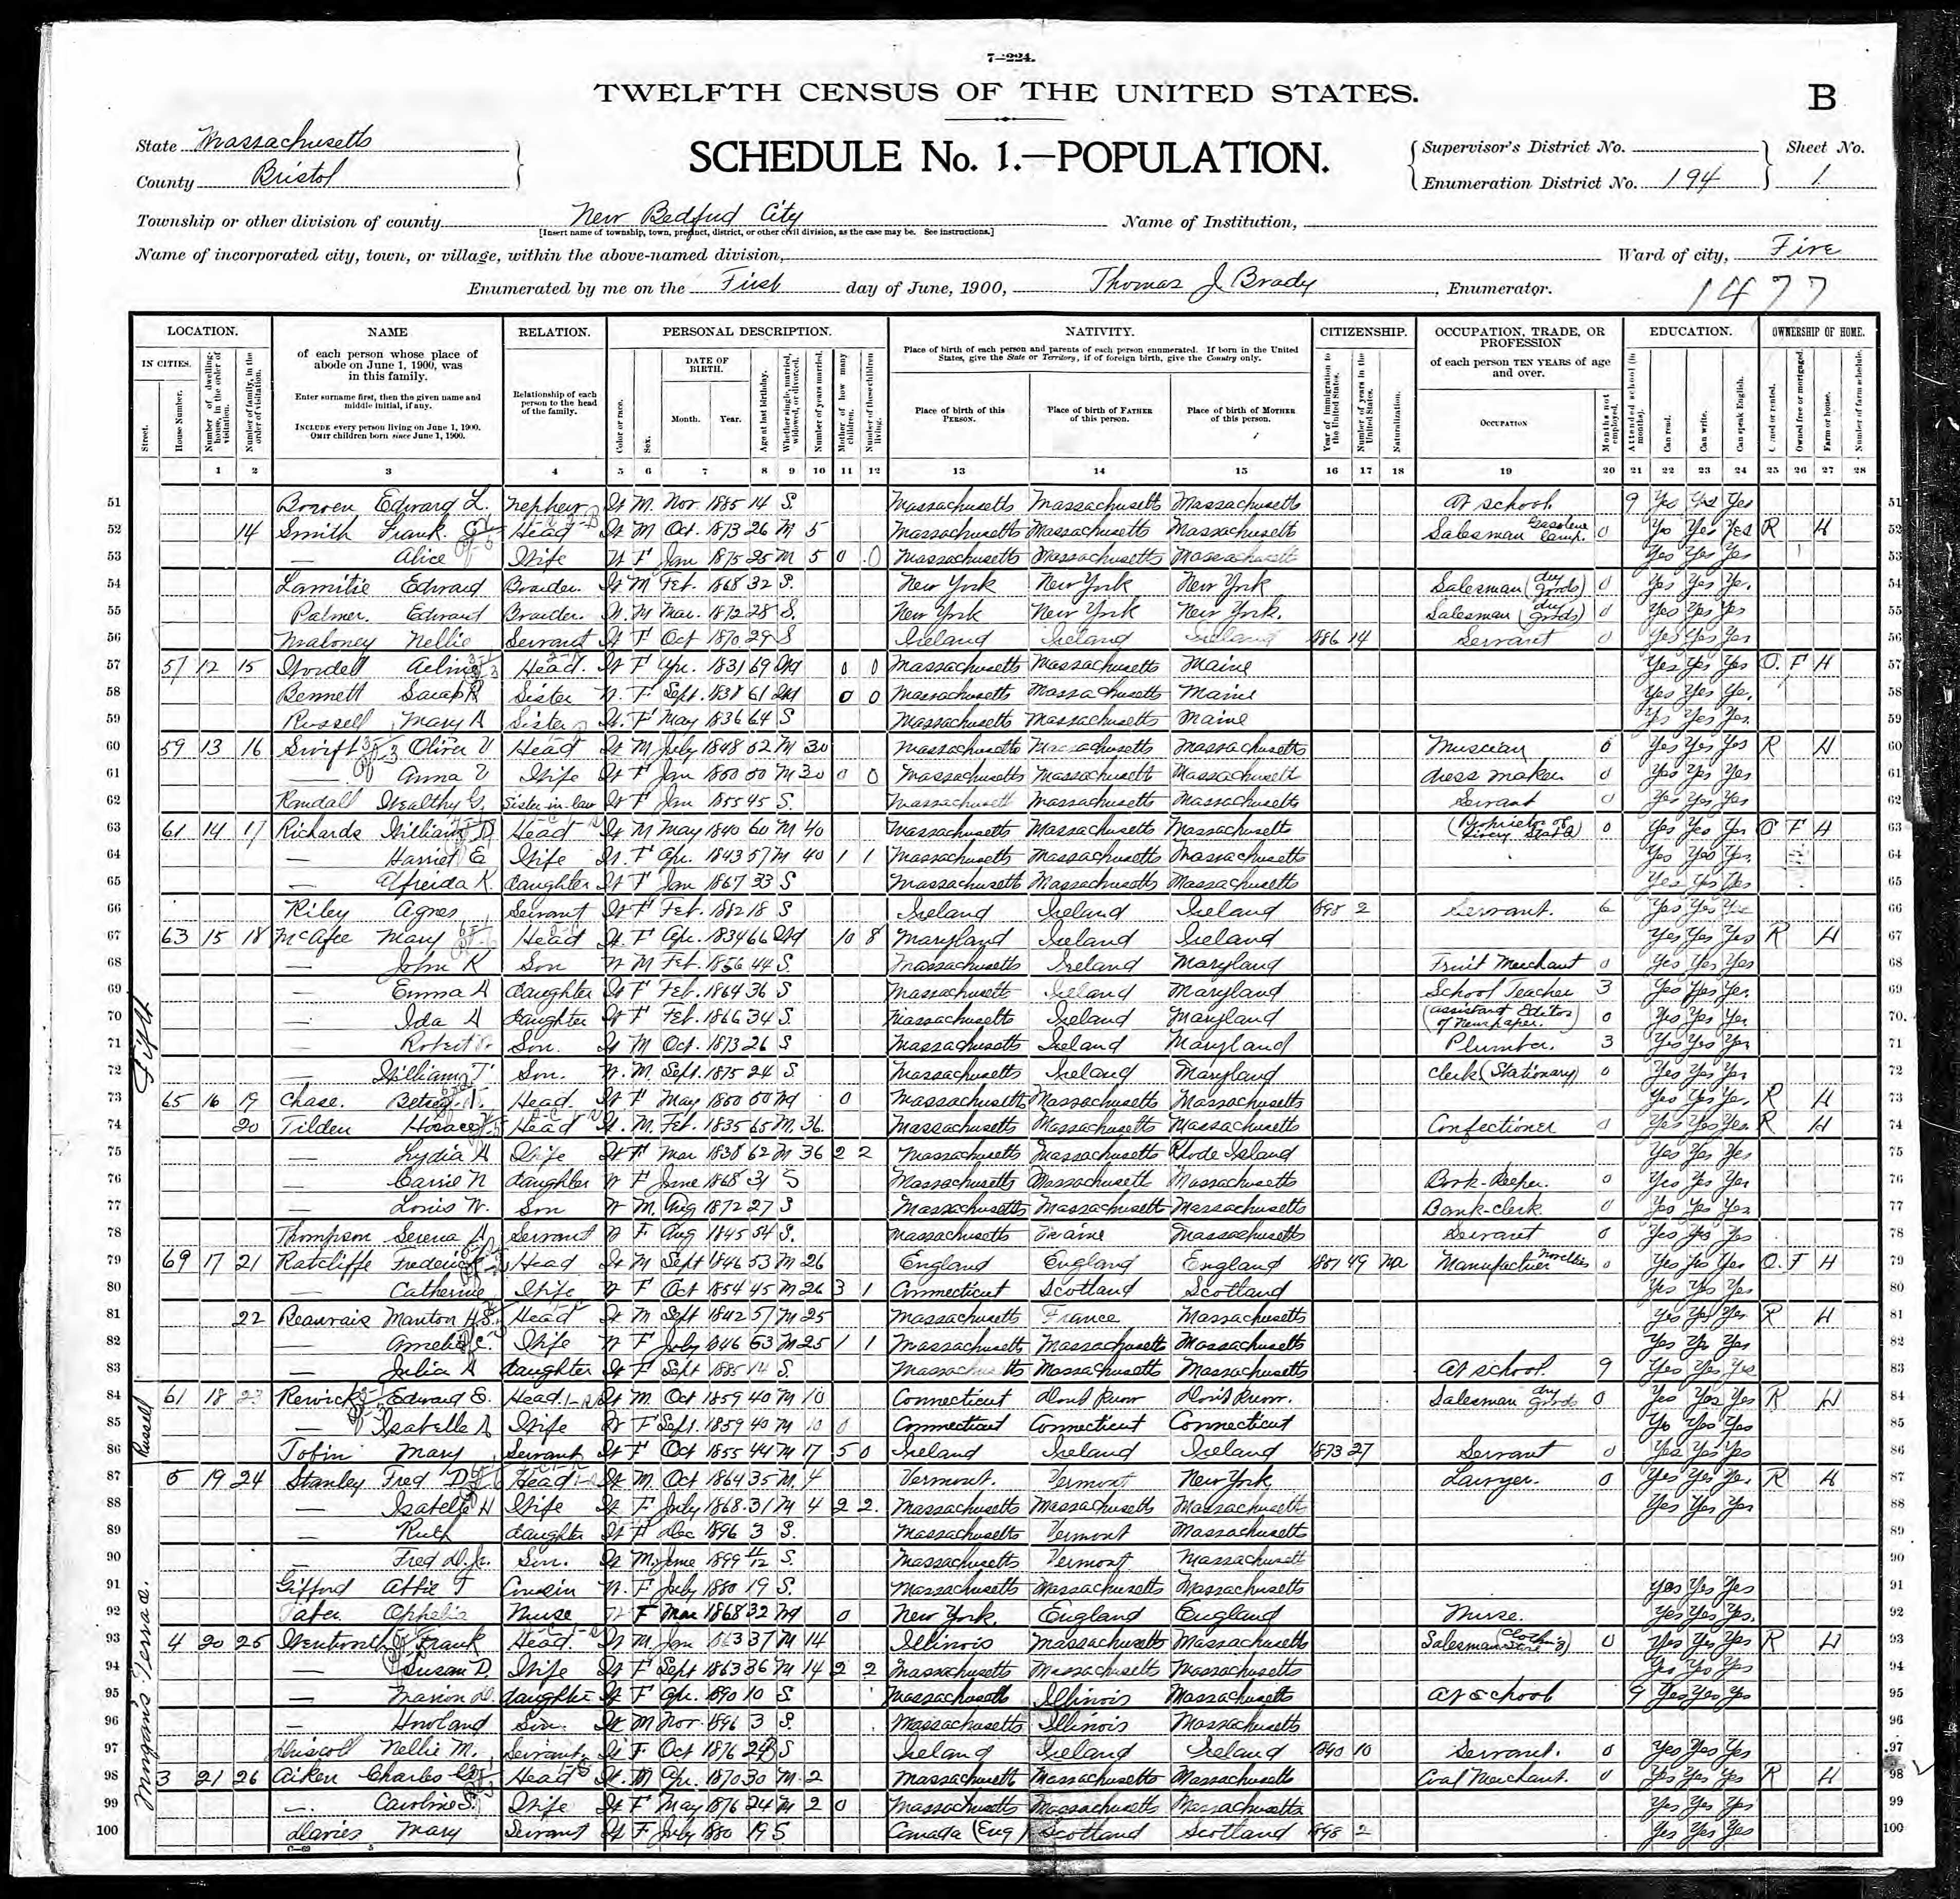 7—224.
TWELFTH CENSUS OF THE UNITED STATES.
B
State Massachusetts
County Bristol
SCHEDULE No. 1.—POPULATION.
Supervisor's District No.
Enumeration District No. 194
Sheet No.
1
Township or other division of county New Bedford City
[Insert name of township, town, precinct, district, or other civil division, as the case may be. See instructions.]
Name of Institution,
Name of incorporated city, town, or village, within the above-named division,
Ward of city, Five
Enumerated by me on the First day of June, 1900, Thomas J Brady, Enumerator.
1477
LOCATION. NAME RELATION. PERSONAL DESCRIPTION. NATIVITY. CITIZENSHIP. OCCUPATION, TRADE, OR PROFESSION EDUCATION. OWNERSHIP OF HOME.
IN CITIES.
Street.
House Number.
Number of dwelling-house, in the order of visitation.
Number of family, in the order of visitation.
of each person whose place of abode on June 1, 1900, was in this family.
Enter surname first, then the given name and middle initial, if any.
INCLUDE every person living on June 1, 1900.
OMIT children born since June 1, 1900.
Relationship of each person to the head of the family.
Color or race.
Sex.
DATE OF BIRTH.
Month. Year.
Age at last birthday.
Whether single, married, widowed, or divorced.
Number of years married.
Mother of how many children.
Number of these children living.
Place of birth of each person and parents of each person enumerated. If born in the United States, give the State or Territory; if of foreign birth, give the Country only.
Place of birth of this PERSON.
Place of birth of FATHER of this person.
Place of birth of MOTHER of this person.
Year of immigration to the United States.
Number of years in the United States.
Naturalization.
of each person TEN YEARS of age and over.
OCCUPATION
Months not employed.
Attended school (in months).
Can read.
Can write.
Can speak English.
Owned or rented.
Owned free or mortgaged.
Farm or house.
Number of farm schedule.
1 2 3 4 5 6 7 8 9 10 11 12 13 14 15 16 17 18 19 20 21 22 23 24 25 26 27 28
51 Bowen Edward L. nephew W M. Nov. 1885 14 S. Massachusetts Massachusetts Massachusetts At school 9 Yes Yes Yes 51
52 14 Smith Frank Head W M Oct. 1873 26 M 5 Massachusetts Massachusetts Massachusetts Salesman 0 Yes Yes Yes R H 52
53 — Alice Wife W F Jan 1875 25 M 5 0 0 Massachusetts Massachusetts Massachusetts Yes Yes Yes 53
54 Edward Boarder W M Feb. 1868 32 S. New York New York New York Salesman (dry goods) 0 Yes Yes Yes 54
55 Palmer Edward Boarder W M Mar. 1872 28 S. New York New York New York. Salesman (dry goods) 0 Yes Yes Yes 55
56 Maloney Nellie Servant W F Oct 1870 29 S Ireland Ireland Ireland 1886 14 Servant 0 Yes Yes Yes 56
57 57 12 15 Wordell Head. W F Apr. 1831 69 Wd 0 0 Massachusetts Massachusetts Maine Yes Yes Yes O. F H 57
58 Bennett Sarah R Sister W. F Sept. 1838 61 Wd 0 0 Massachusetts Massachusetts Maine Yes Yes Yes 58
59 Russell Mary A Sister W. F May 1836 64 S Massachusetts Massachusetts Maine Yes Yes Yes 59
60 59 13 16 Swift Oliver V Head W M July 1848 52 M 30 Massachusetts Massachusetts Massachusetts Musician 0 Yes Yes Yes R H 60
61 — Anna V Wife W F Jan 1850 50 M 30 0 0 Massachusetts Massachusetts Massachusetts dress maker 0 Yes Yes Yes 61
62 Randall Wealthy G. Sister-in-law W F Jan 1855 45 S. Massachusetts Massachusetts Massachusetts Servant 0 Yes Yes Yes 62
63 61 14 17 Richards William D Head W M May 1840 60 M 40 Massachusetts Massachusetts Massachusetts (Proprietor of Livery Stable) 0 Yes Yes Yes O F H 63
64 — Harriet E Wife W. F Apr. 1843 57 M 40 1 1 Massachusetts Massachusetts Massachusetts Yes Yes Yes 64
65 — Alfreida K. daughter W F Jan 1867 33 S Massachusetts Massachusetts Massachusetts Yes Yes Yes 65
66 Riley Agnes Servant W F Feb. 1882 18 S Ireland Ireland Ireland 1898 2 Servant. 6 Yes Yes Yes 66
67 63 15 18 McAfee Mary Head W. F Apr. 1834 66 Wd 10 8 Maryland Ireland Ireland Yes Yes Yes R H 67
68 — John K Son W M Feb. 1856 44 S. Massachusetts Ireland Maryland Fruit Merchant 0 Yes Yes Yes 68
69 — Emma A daughter W F Feb. 1864 36 S Massachusetts Ireland Maryland School Teacher 3 Yes Yes Yes. 69
70 — Ida A daughter W F Feb. 1866 34 S. Massachusetts Ireland Maryland (assistant Editor of Newspaper.) 0 Yes Yes Yes 70.
71 — Robert Son. W M Oct. 1873 26 S Massachusetts Ireland Maryland Plumber. 3 Yes Yes Yes 71
72 — William T. Son. W. M. Sept. 1875 24 S. Massachusetts Ireland Maryland Clerk (Stationary) 0 Yes Yes Yes 72
73 65 16 19 Chase. Betsey Head. W F May 1850 50 Wd 0 Massachusetts Massachusetts Massachusetts Yes Yes Yes. R H 73
74 20 Tilden Horace Head W. M. Feb. 1835 65 M. 36. Massachusetts Massachusetts Massachusetts Confectioner 0 Yes Yes Yes. R H 74
75 — Lydia A Wife W F Mar 1838 62 M 36 2 2 Massachusetts Massachusetts Rhode Island Yes Yes Yes 75
76 — Carrie N daughter W F June 1868 31 S Massachusetts Massachusetts Massachusetts Book-Keeper. 0 Yes Yes Yes 76
77 — Louis W. Son W M. Aug 1872 27 S Massachusetts Massachusetts Massachusetts Bank-clerk 0 Yes Yes Yes 77
78 Thompson Serena A Servant W F. Aug 1845 54 S. Massachusetts Maine Massachusetts Servant 0 Yes Yes Yes 78
79 69 17 21 Ratcliffe Frederick Head W M Sept 1846 53 M 26 England England England 1851 49 Na Manufacturer Novelties 0 Yes Yes Yes O. F H 79
80 — Catherine Wife W F Oct 1854 45 M 26 3 1 Connecticut Scotland Scotland Yes Yes Yes 80
81 22 Beauvais Manton H.S. Head W M Sept 1842 57 M 25 Massachusetts France Massachusetts Yes Yes Yes R H 81
82 — Amelia C. Wife W F July 1846 53 M 25 1 1 Massachusetts Massachusetts Massachusetts Yes Yes Yes 82
83 — Julia A daughter W F Sept 1885 14 S. Massachusetts Massachusetts Massachusetts At school. 9 Yes Yes Yes 83
84 61 18 23 Rewick Edward S. Head W M. Oct 1859 40 M 10 Connecticut Dont Know Dont Know. Salesman dry goods 0 Yes Yes Yes R H 84
85 — Isabelle A Wife W F Sept. 1859 40 M 10 0 Connecticut Connecticut Connecticut Yes Yes Yes 85
86 Tobin Mary Servant W F Oct 1855 44 M 17 5 0 Ireland Ireland Ireland 1873 27 Servant 0 Yes Yes Yes 86
87 5 19 24 Stanley Fred D. Head W M. Oct 1864 35 M. 4 Vermont. Vermont New York Lawyer. 0 Yes Yes Yes. R H 87
88 — Isabelle H Wife W F July 1868 31 M 4 2 2. Massachusetts Massachusetts Massachusetts Yes Yes Yes 88
89 — Ruth daughter W F Dec 1896 3 S. Massachusetts Vermont Massachusetts 89
90 — Fred D. Jr. Son. W M. June 1899 11/12 S. Massachusetts Vermont Massachusetts 90
91 Gifford Abbie T Cousin W. F July 1880 19 S. Massachusetts Massachusetts Massachusetts Yes Yes Yes 91
92 Taber Ophelia Nurse W F Mar 1868 32 Wd 0 New York. England England Nurse. Yes Yes Yes. 92
93 4 20 25 Wentworth Frank Head. W M. Jan 1863 37 M 14 Illinois Massachusetts Massachusetts Salesman (Clothing Store) 0 Yes Yes Yes R H 93
94 — Susan D. Wife W F Sept 1863 36 M 14 2 2 Massachusetts Massachusetts Massachusetts Yes Yes Yes 94
95 — Marion D. daughter W F Apr. 1890 10 S. Massachusetts Illinois Massachusetts At school 9 Yes Yes Yes 95
96 — Howland Son. W M Nov. 1896 3 S. Massachusetts Illinois Massachusetts 96
97 Driscoll Nellie M. Servant. W F. Oct 1876 23 S Ireland Ireland Ireland 1890 10 Servant. 0 Yes Yes Yes 97
98 3 21 26 Aiken Charles Head W. M Apr. 1870 30 M. 2 Massachusetts Massachusetts Massachusetts Coal Merchant. 0 Yes Yes Yes R H 98
99 — Caroline S. Wife W F May 1876 24 M 2 0 Massachusetts Massachusetts Massachusetts Yes Yes Yes 99
100 Davies Mary Servant W F July 1880 19 S Canada (Eng) Scotland Scotland 1898 2 Yes Yes Yes 100
Fifth
Russell
Morgan's Terrace.